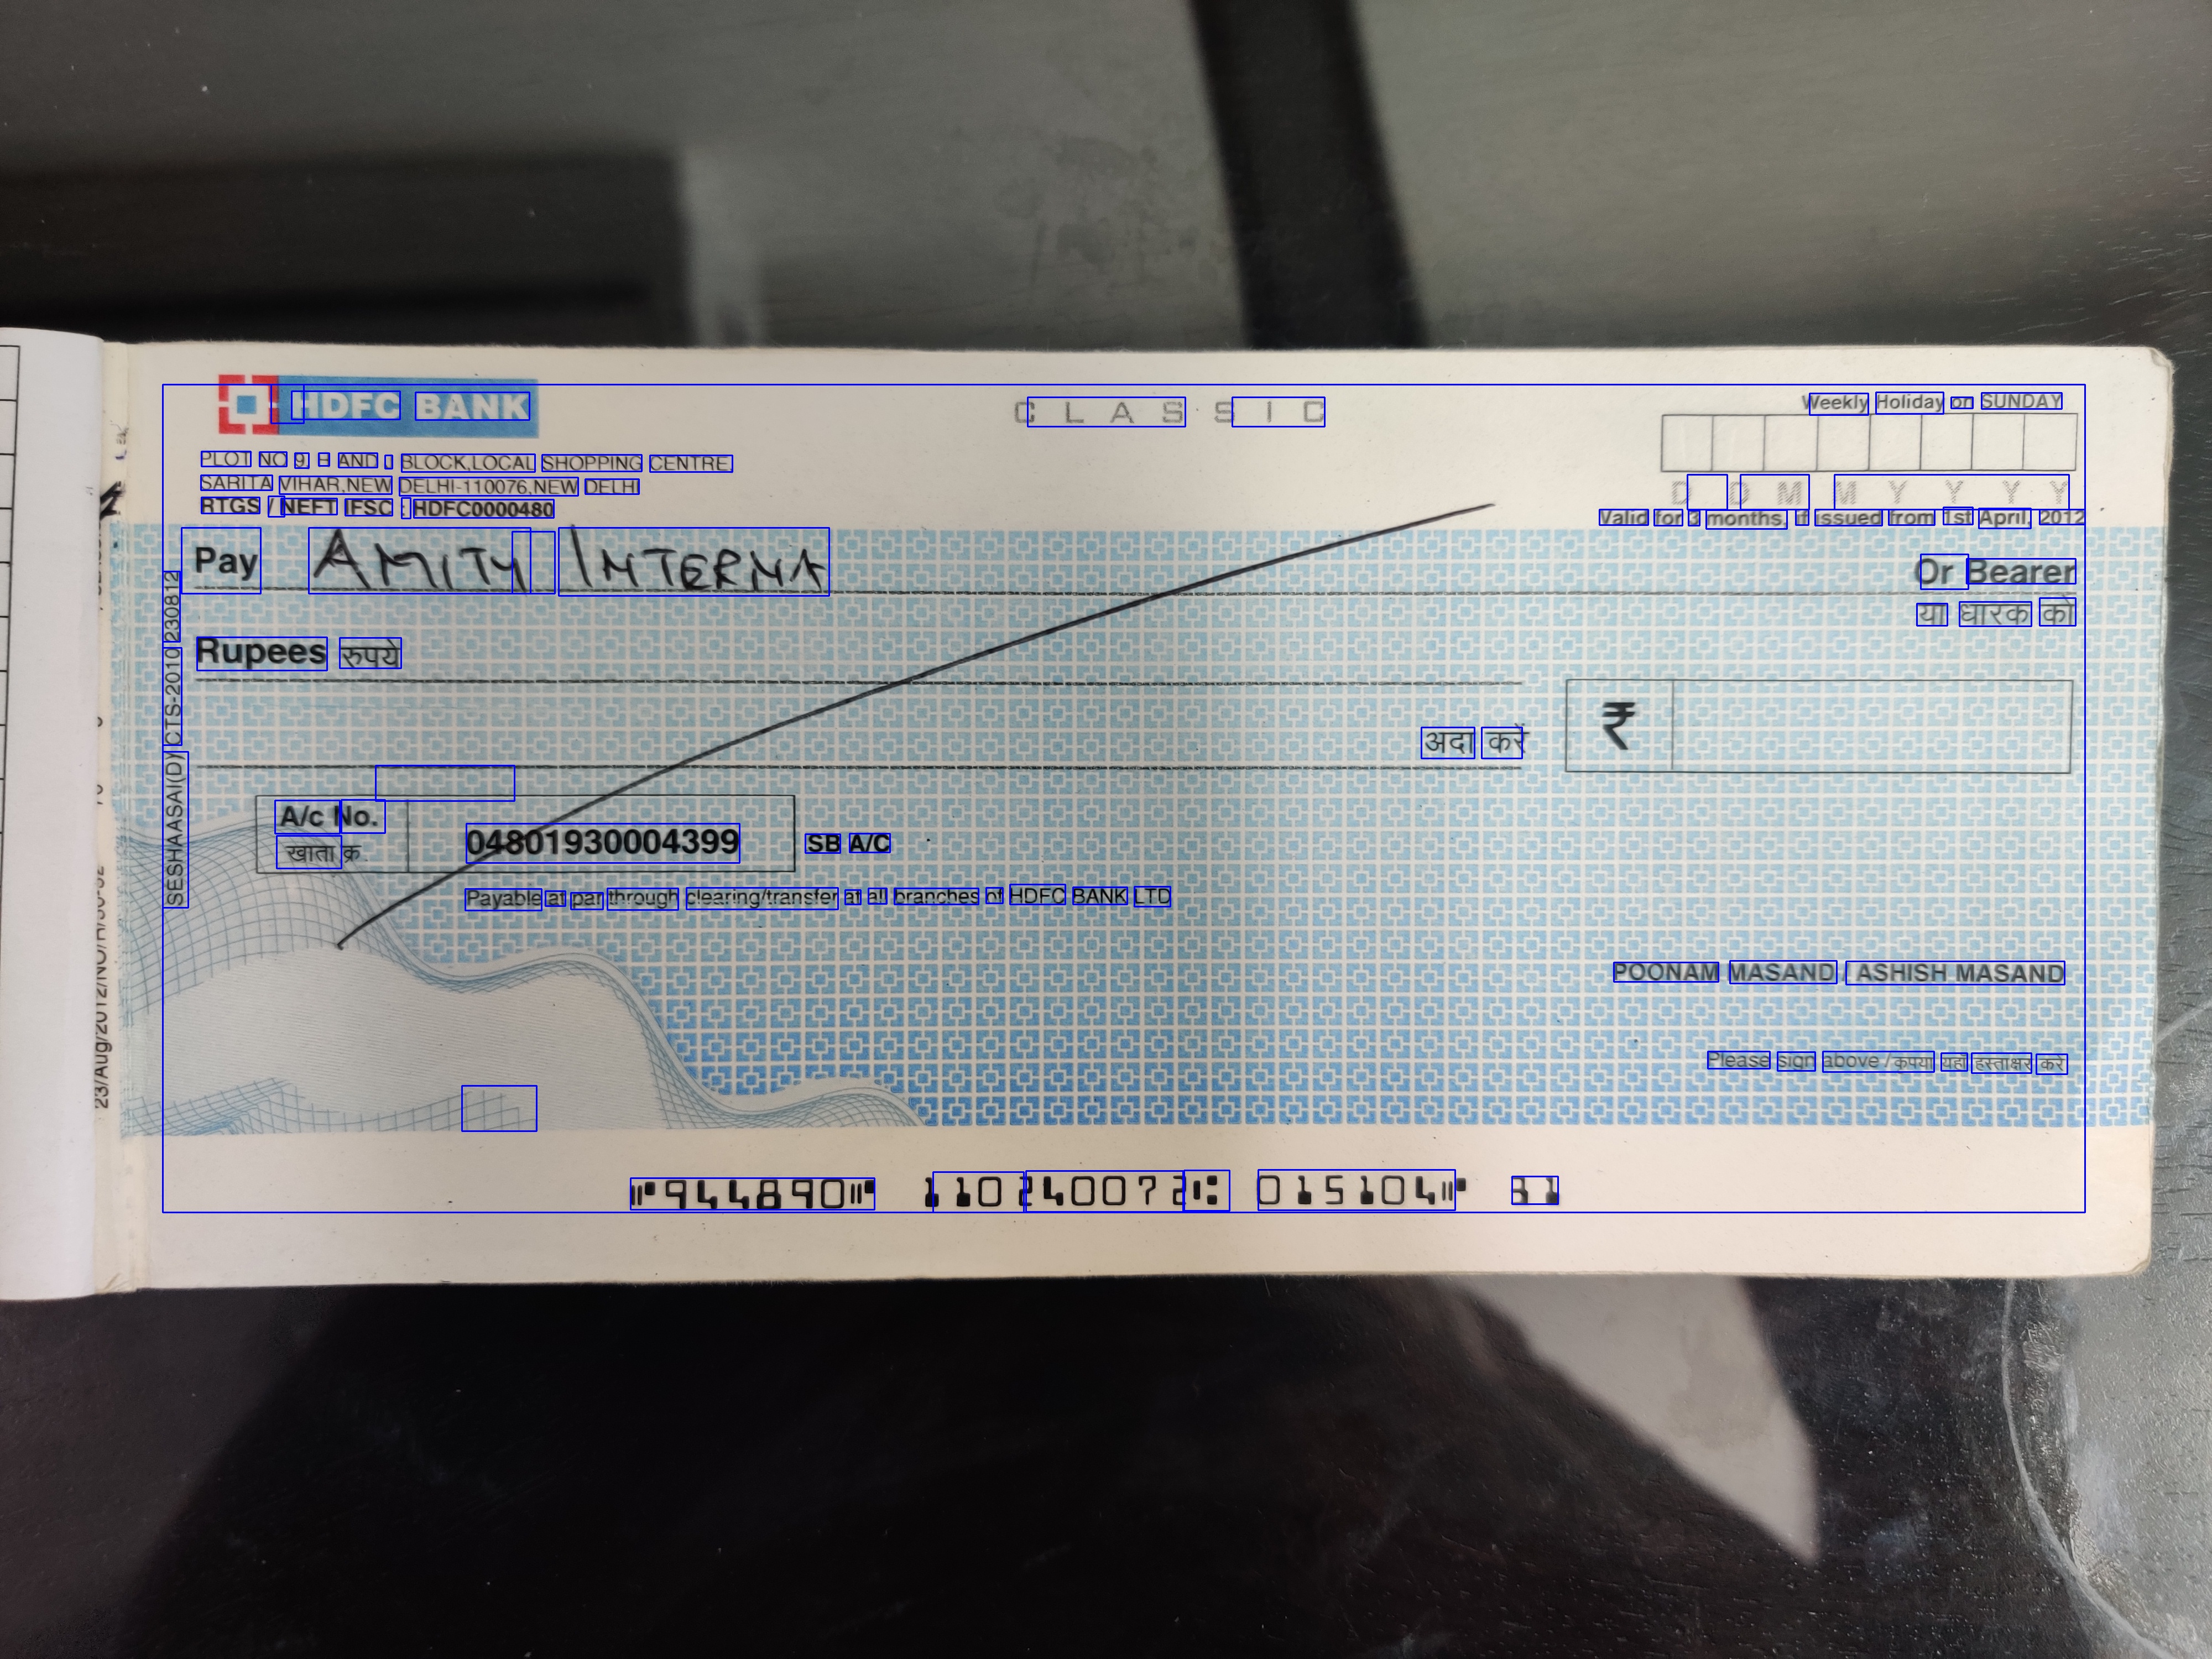 HDFC BANK
CLASSIC
Weekly Holiday on SUNDAY
PLOT NO 9, H AND J BLOCK,LOCAL SHOPPING CENTRE,
SARITA VIHAR,NEW DELHI-110076,NEW DELHI
RTGS / NEFT IFSC : HDFC0000480
D D M M Y Y Y Y
Valid for 3 months, if issued from 1st April, 2012
Pay AMITY INTERNA
Or Bearer
या धारक को
Rupees रुपये
अदा करें
₹
A/c No.
खाता क्र.
04801930004399
SB A/C
Payable at par through clearing/transfer at all branches of HDFC BANK LTD
SESHAASAI(D) CTS-2010 230812
POONAM MASAND ASHISH MASAND
Please sign above / कृपया यहाँ हस्ताक्षर करें
⑈944890⑈ 110240072⑆ 015104⑈ 31